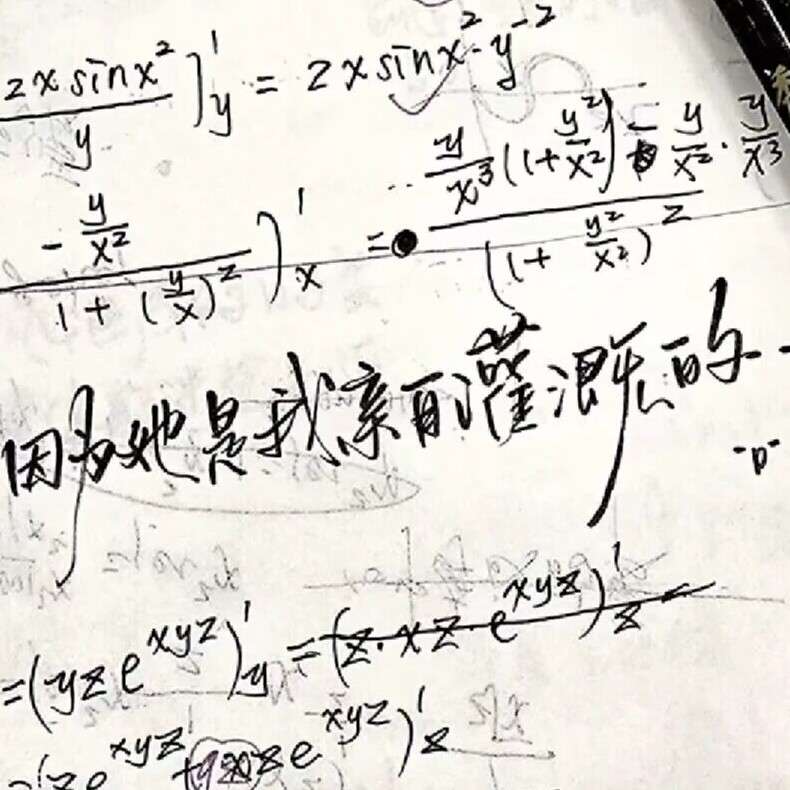 2x sinx²/y)'y = 2x sinx²·y⁻²
-y/x² / 1 + (y/x)²)'x = y/x³(1+y²/x²) - y/x²·y/x³ / (1 + y²/x²)²
因为她是我亲自灌溉的
=(yz e^xyz)'y = (z·xz·e^xyz)'z
e^xyz + xyz e^xyz)'z